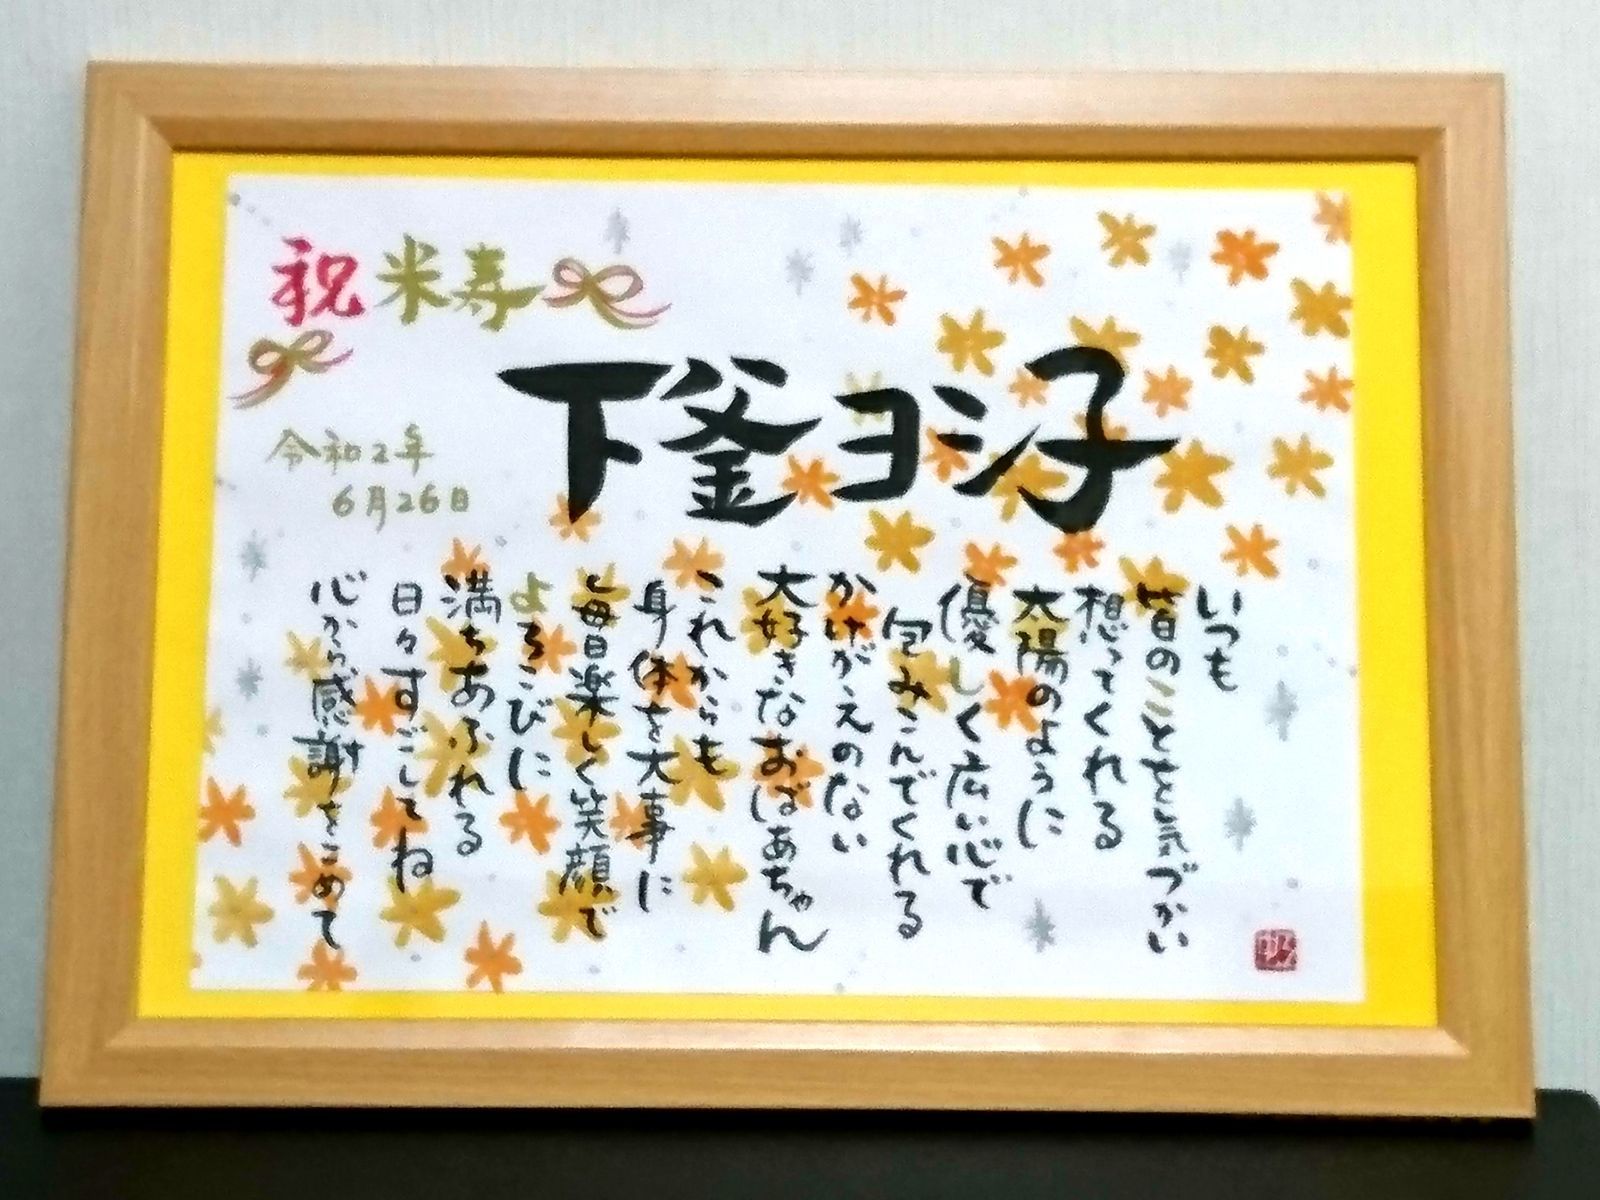 祝米寿
令和2年
6月26日
下釜ヨシ子
いつも
皆のことを気づかい
想ってくれる
太陽のように
優しく広い心で
包みこんでくれる
かけがえのない
大好きなおばあちゃん
これからも
身体を大事に
毎日楽しく笑顔で
よろこびに
満ちあふれる
日々すごしてね
心から感謝をこめて